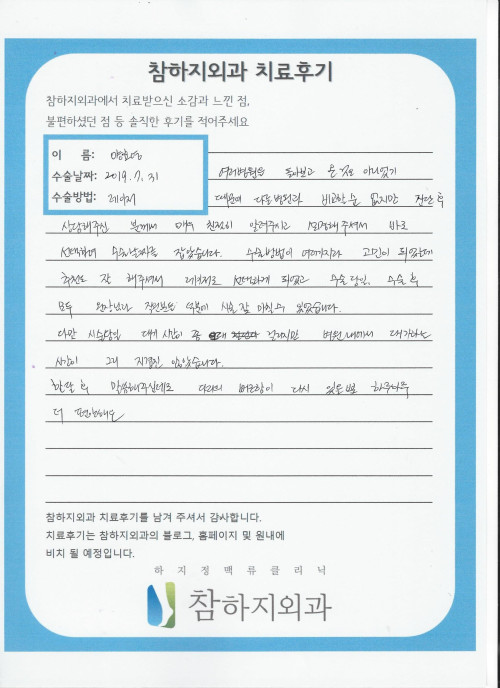 참하지외과 치료후기
참하지외과에서 치료받으신 소감과 느낀 점,
불편하셨던 점 등 솔직한 후기를 적어주세요
이 름:
수술날짜: 2019. 7. 31
수술방법: 레이저
여러병원을 돌아보고 온 것은 아니었기
때문에 다른병원과 비교할 순 없지만 진단 후
상담해주신 분께서 매우 친절히 알려주시고 설명해주셔서 바로
선택하여 수술날짜를 잡았습니다. 수술방법이 여러가지라 고민이 되었는데
추천도 잘 해주셔서 레이저로 선택하게 되었고 수술당일, 수술 후
모두 원장님과 직원분들 덕분에 시술 잘 마칠 수 있었습니다.
다만 시술당일 대기 시간이 좀 오래 걸렸지만 병원내에서 대기하는
시간이 그리 지겹진 않았습니다.
한달 후 말씀해주신대로 다리의 버런함이 다시 있는 별로 하루하루
더 편안해요
참하지외과 치료후기를 남겨 주셔서 감사합니다.
치료후기는 참하지외과의 블로그, 홈페이지 및 원내에
비치 될 예정입니다.
하지정맥류클리닉
참하지외과